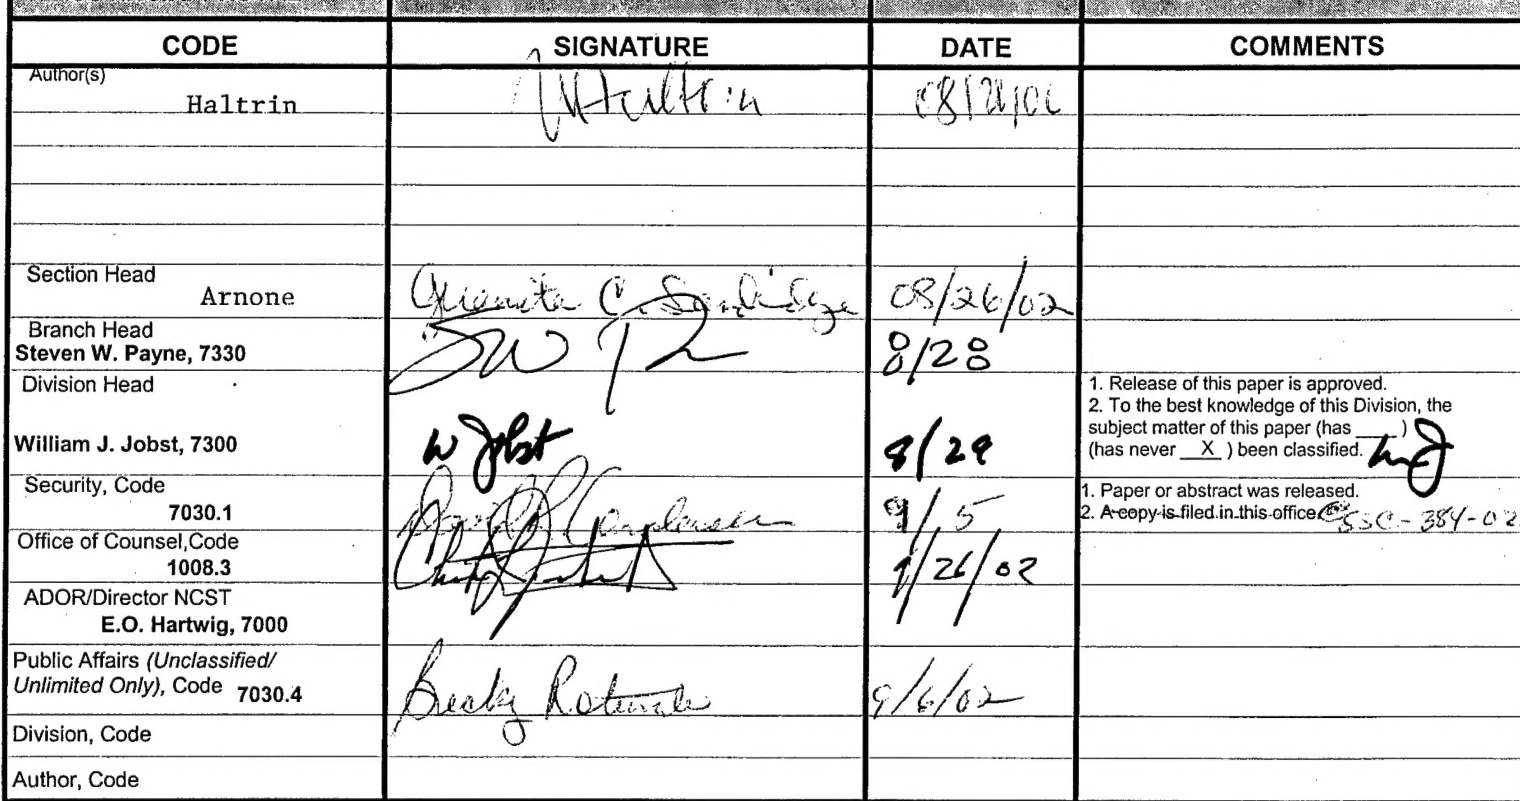 CODE SIGNATURE DATE COMMENTS
Author(s)
Haltrin
Section Head
Arnone 08/26/02
Branch Head
Steven W. Payne, 7330 8/28
Division Head
1. Release of this paper is approved.
2. To the best knowledge of this Division, the
subject matter of this paper (has ____ )
William J. Jobst, 7300 W Jobst 8/29 (has never X ) been classified.
Security, Code
7030.1 9/5
1. Paper or abstract was released.
2. A copy is filed in this office SSC-384-02
Office of Counsel,Code
1008.3 9/26/02
ADOR/Director NCST
E.O. Hartwig, 7000
Public Affairs (Unclassified/
Unlimited Only), Code 7030.4 Becky 9/6/02
Division, Code
Author, Code